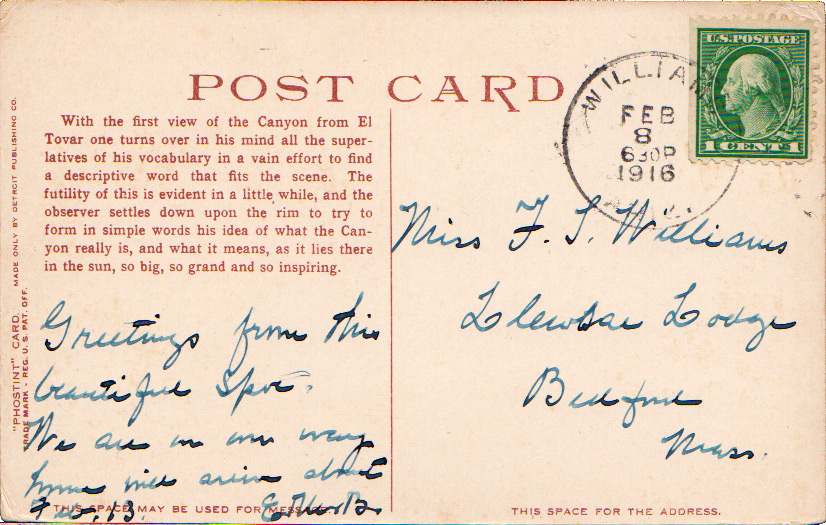 POST CARD
With the first view of the Canyon from El
Tovar one turns over in his mind all the super-
latives of his vocabulary in a vain effort to find
a descriptive word that fits the scene. The
futility of this is evident in a little while, and the
observer settles down upon the rim to try to
form in simple words his idea of what the Can-
yon really is, and what it means, as it lies there
in the sun, so big, so grand and so inspiring.
"PHOSTINT" CARD. MADE ONLY BY DETROIT PUBLISHING CO.
TRADE MARK, REG. U. S. PAT. OFF.
Greetings from this
beautiful spot.
We are on our way
home will arrive about
Feb. 13.
THIS SPACE MAY BE USED FOR MESSAGE
U.S. POSTAGE
1 CENT 1
WILLIAMS
FEB
8
630P
1916
ARIZ.
Miss F. S. Williams
Lodge
Bedford
Mass.
THIS SPACE FOR THE ADDRESS.